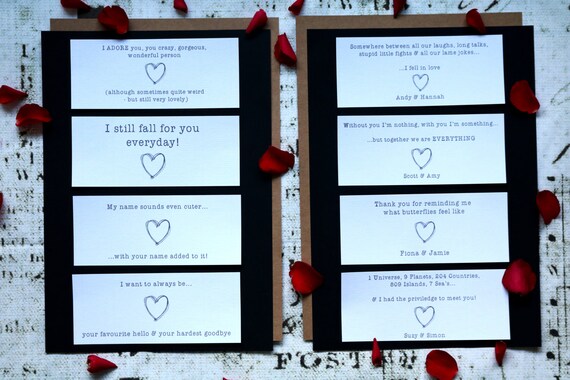 I ADORE you, you crazy, gorgeous,
wonderful person
(although sometimes quite weird
- but still very lovely)
I still fall for you
everyday!
My name sounds even cuter...
...with your name added to it!
I want to always be...
your favourite hello & your hardest goodbye
Somewhere between all our laughs, long talks,
stupid little fights & all our lame jokes...
...I fell in love
Andy & Hannah
Without you I'm nothing, with you I'm something...
...but together we are EVERYTHING
Scott & Amy
Thank you for reminding me
what butterflies feel like
Fiona & Jamie
1 Universe, 9 Planets, 204 Countries,
809 Islands, 7 Sea's...
& I had the priviledge to meet you!
Suzy & Simon